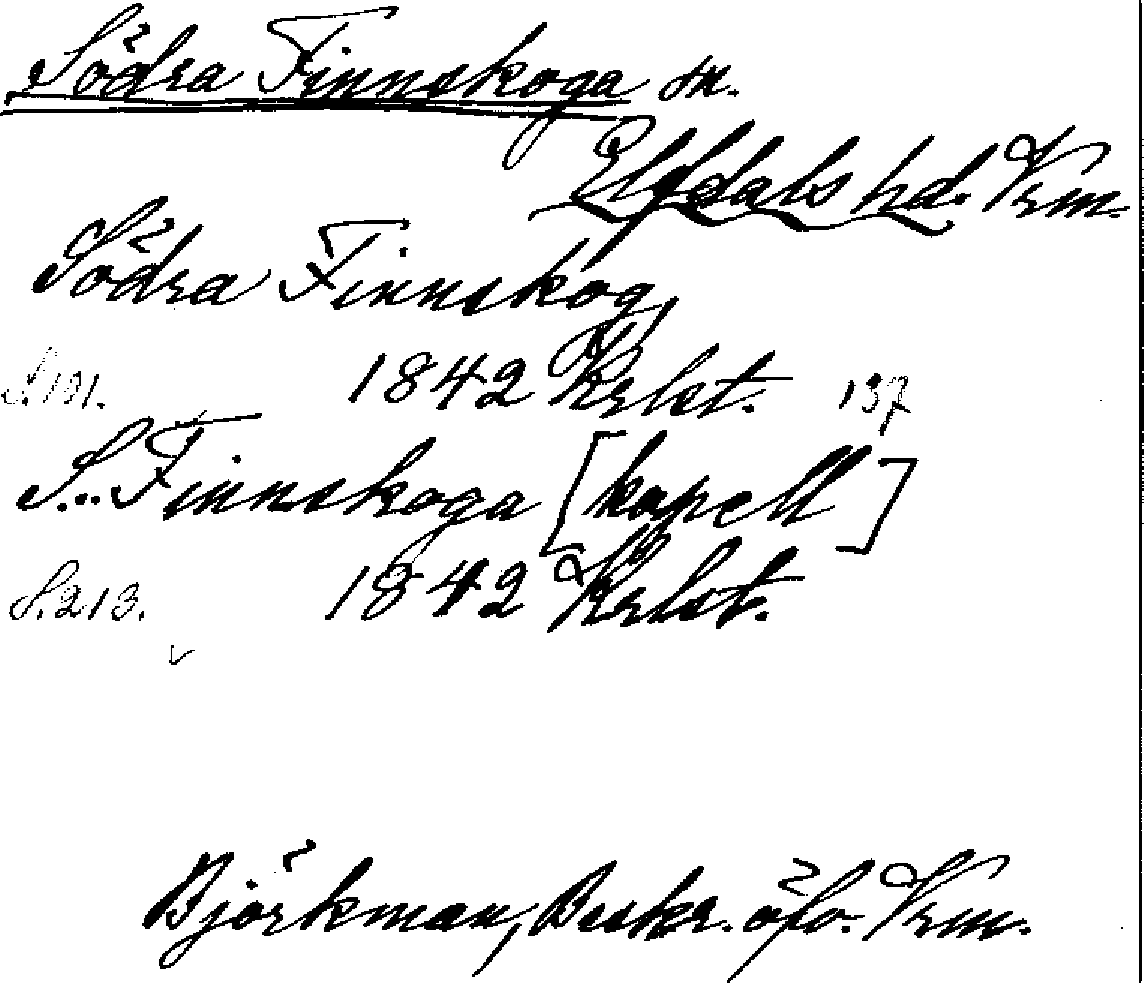 Södra Finnskoga sn.
Elfdals hd. Vrm.
Södra Finnskog,
S. 101. 1842 Krlst. 137
S. Finnskoga [kapell]
S. 213. 1842 Krlst.
Björkman, Beskr. öfv. Vrm.